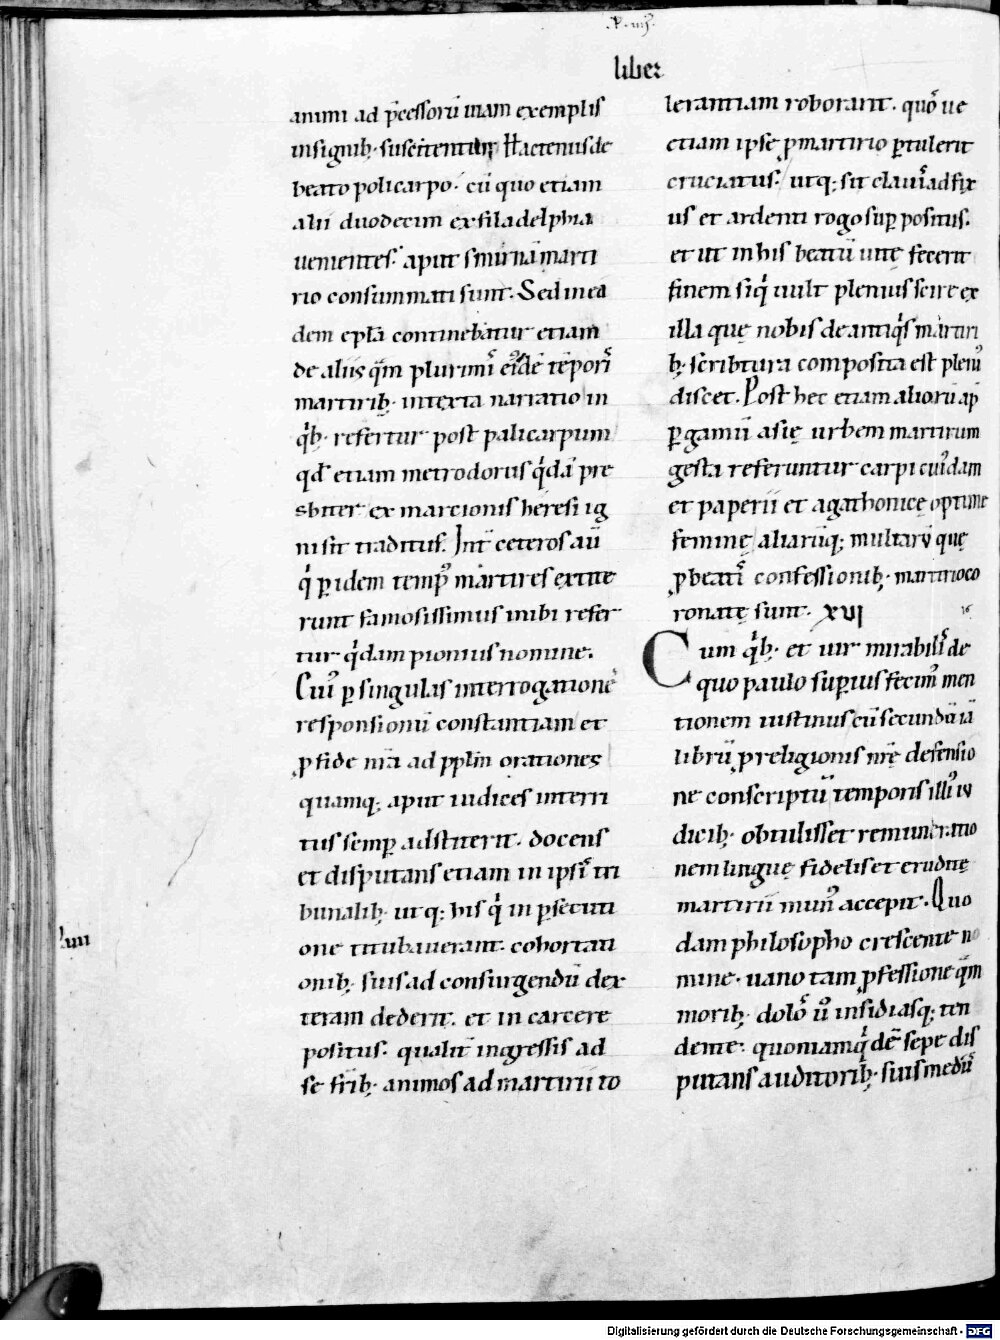 liber
animi ad p̄cessorū uiam exemplis
insignib; suscitentur Hactenus de
beato policarpo. cū quo etiam
alii duodecim ex filadelphia
uenientes. aput smirnā marti
rio consummati sunt. Sed in ea
dem ep̄la continebatur etiam
de aliis qm̄ plurimi eidē tēpori
martirib; intexta narratio in
qib; refertur post palicarpum
qd̄ etiam metrodorus qidā pre
sbiter ex marcionis heresi ig
ni sit traditus. Int̄ ceteros aū
qi ꝑ idem temp' martires extite
runt famosissimus inibi refer
tur qidam pionius nomine.
Cui' ꝑ singulas interrogatione
responsionū constantiam et
ꝓ fide nr̄a ad pplm̄ orationes
quamq; aput iudices interri
tus semꝑ adstiterit. docens
et disputans etiam in ipsis tri
bunalib; utq; his qi in ꝑsecuti
one titubauerant. cohortati
onib; suis ad consurgendū dex
teram dederit. et in carcere
positus. qualit̄ ingressis ad
se frīb; animos ad martirii to
lerantiam roborarit. quo ue
etiam ipse ꝓ martirio ꝑtulerit
cruciatus. utq; sit clauis adfix
us et ardenti rogo suꝑ positus.
et ut in his beatū uitę fecerit
finem siqi uult plenius scire ex
illa quę nobis de antiqis martiri
b; scribtura composita est pleni'
discet. Post hec etiam aliorū ap̄
ꝑgamū asię urbem martirum
gesta referuntur carpi cui'dam
et paperii et agathonicę optime
feminę aliarūq; multarū quę
ꝓ beatis confessionib; martirio co
ronatę sunt. XVI
Cum qib; et uir mirabilis de
quo paulo suꝑius fecim' men
tionem iustinus cū secundū iā
librū ꝓ religionis nrę defensio
ne conscriptū temporis illi' iu
dicib; obtulisset remuneratio
nem linguę fidelis et eruditę
martirii mun' accepit. Quo
dam philosopho crescente no
mine. uano tam ꝓfessione qm̄
morib; dolos u° insidiasq; ten
dente. quoniam qidē sepe dis
putans auditorib; suis mediis
Digitalisierung gefördert durch die Deutsche Forschungsgemeinschaft - DFG